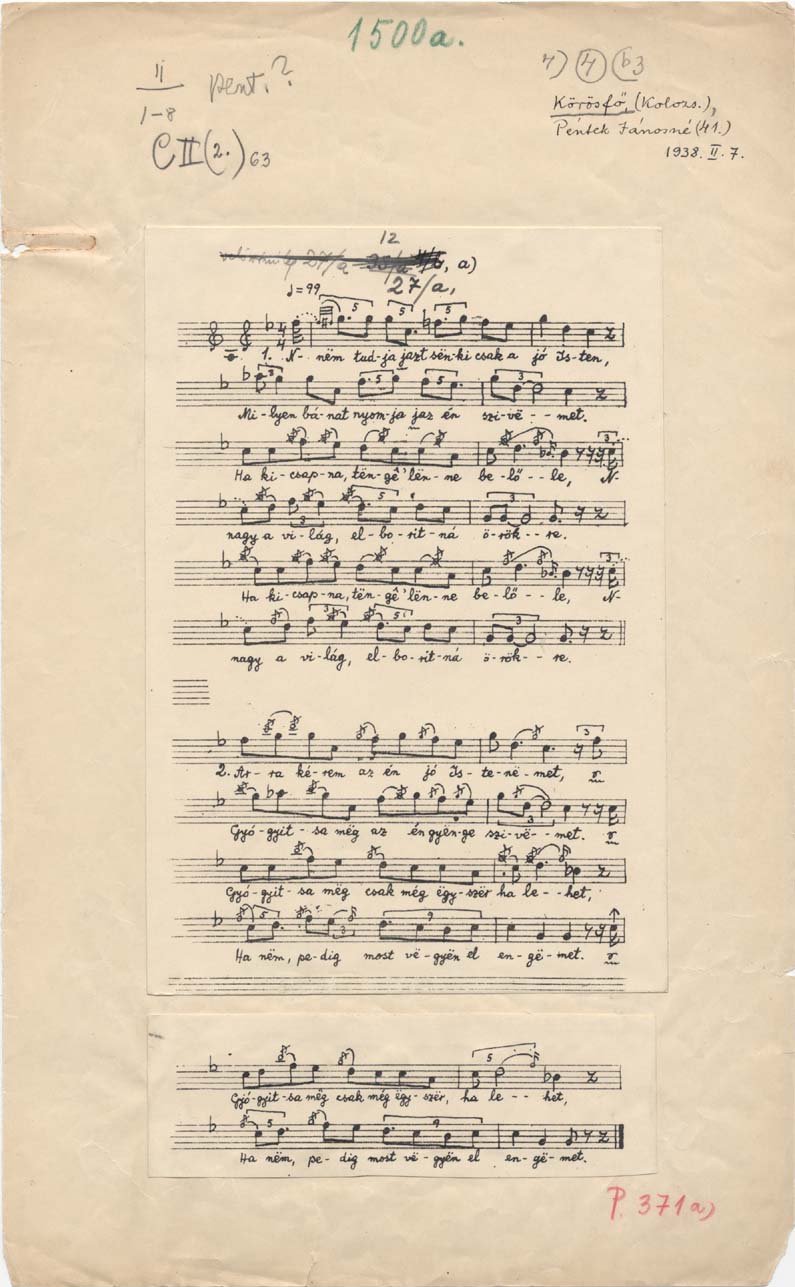 1500a.
II
1-8
pent.?
CII(2.)63
4) 4 b3
Körösfő, (Kolozs.),
Péntek Jánosné (41.)
1938. II. 7.
12
27/a, a)
27/a,
♩=99
1. N- nëm tud-ja jazt sën-ki csak a jó Is-ten,
Mi-lyen bá-nat nyom-ja jaz én szi-vë--met.
Ha ki-csap-na, tën-gê'lën-ne be-lő--le, N-
nagy a vi-lág, el-bo-rit-ná ö-rök--re.
Ha ki-csap-na, tën-gê'lën-ne be-lő--le, N-
nagy a vi-lág, el-bo-rit-ná ö-rök--re.
2. Ar-ra ké-rem az én jó Is-te-në-met,
Gyó-gyit-sa mëg az én gyën-ge szi-vë--met.
Gyó-gyit-sa mëg csak még ëgy-szër ha le--het,
Ha nëm, pe-dig most vë-gyën el en-gë-met.
Gyó-gyit-sa mëg csak még ëgy-szër, ha le--het,
Ha nëm, pe-dig most vë-gyën el en-gë-met.
P. 371a)